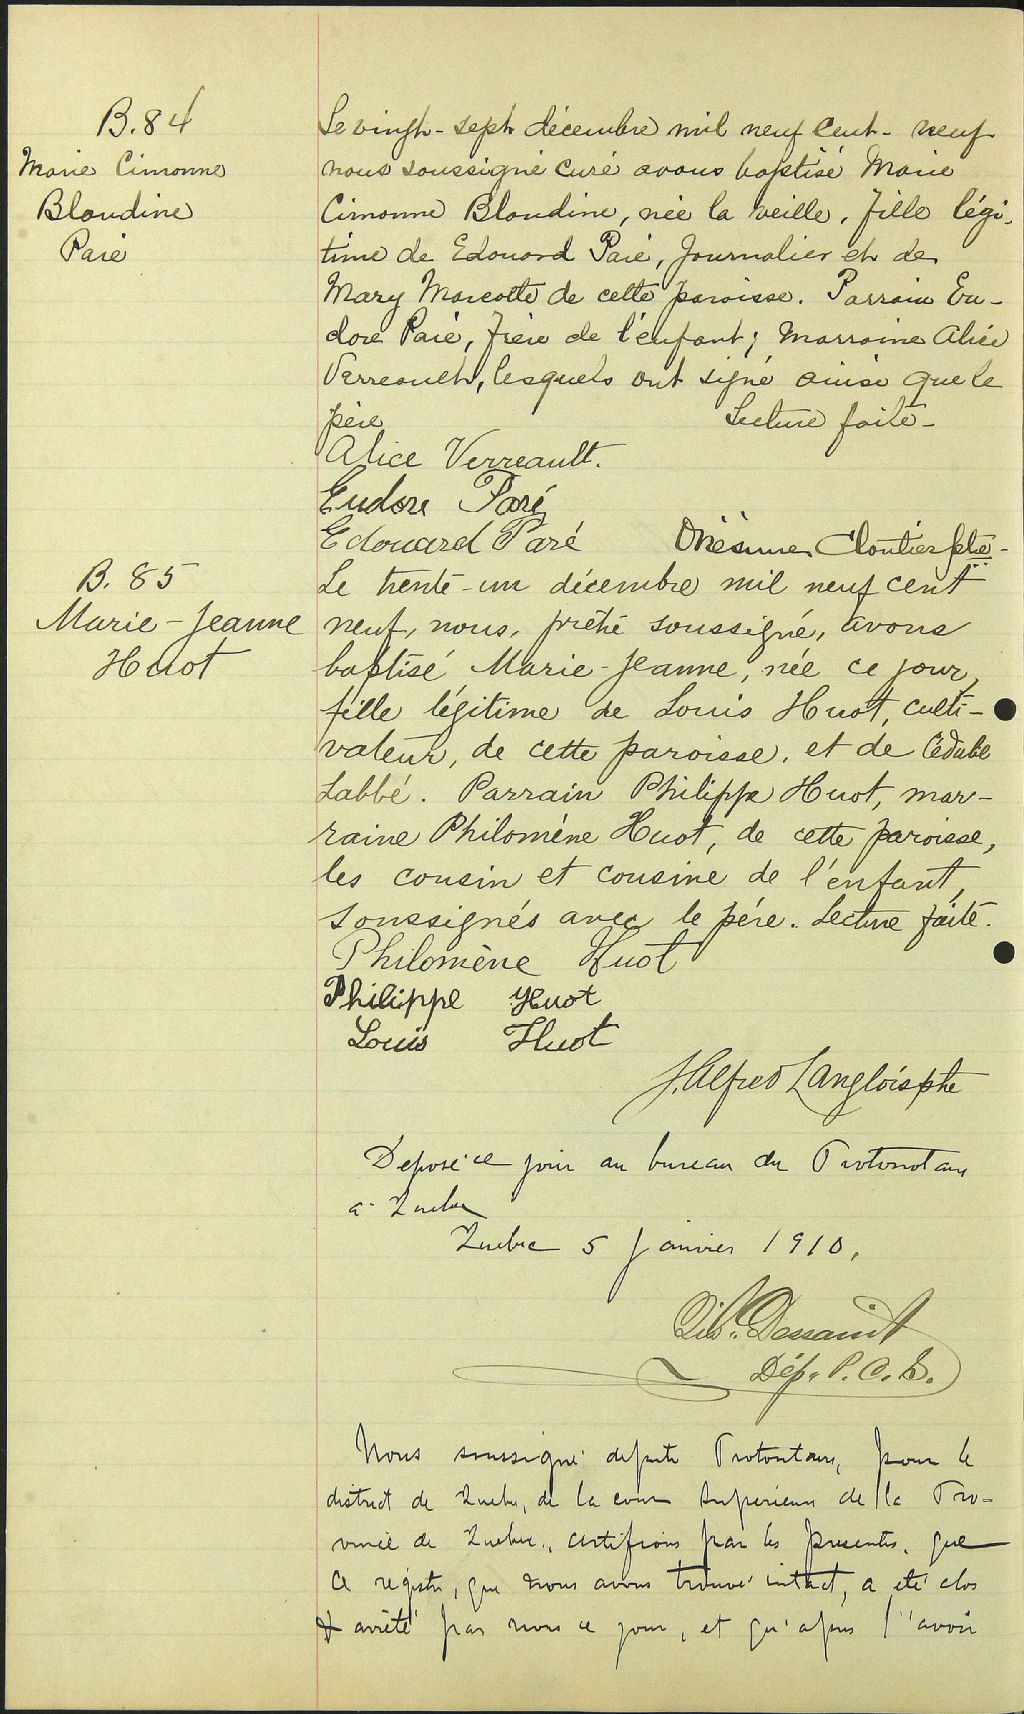 B. 84
Marie Cimonne
Blandine
Paré
Le vingt-sept décembre mil neuf cent-neuf
nous soussigné curé avons baptisé Marie
Cimonne Blandine, née la veille, fille légi-
time de Edouard Paré, Journalier et de
Mary Marcotte de cette paroisse. Parrain Eu-
dore Paré, frère de l'enfant; Marraine Alice
Verreault, lesquels ont signé ainsi que le
père Lecture faite-
Alice Verreault.
Eudore Paré
Edouard Paré Onésime Cloutier ptre-
B. 85
Marie-Jeanne
Huot
Le trente-un décembre mil neuf cent
neuf, nous, prêtre soussigné, avons
baptisé Marie-Jeanne, née ce jour,
fille légitime de Louis Huot, culti-
vateur, de cette paroisse, et de
Labbé. Parrain Philippe Huot, mar-
raine Philomène Huot, de cette paroisse,
les cousin et cousine de l'enfant,
soussignés avec le père. Lecture faite.
Philomène Huot
Philippe Huot
Louis Huot
J. Alfred Langlois ptre
Déposé ce jour au bureau du Protonotaire
à Québec
Québec 5 Janvier 1910.
Dép. P. C. S.
Nous soussigné député Protonotaire, pour le
district de Québec, de la cour Supérieure de la Pro-
vince de Québec, certifions par les présentes, que
ce registre, que nous avons trouvé intact, a été clos
& arrêté par nous ce jour, et qu'après l'avoir